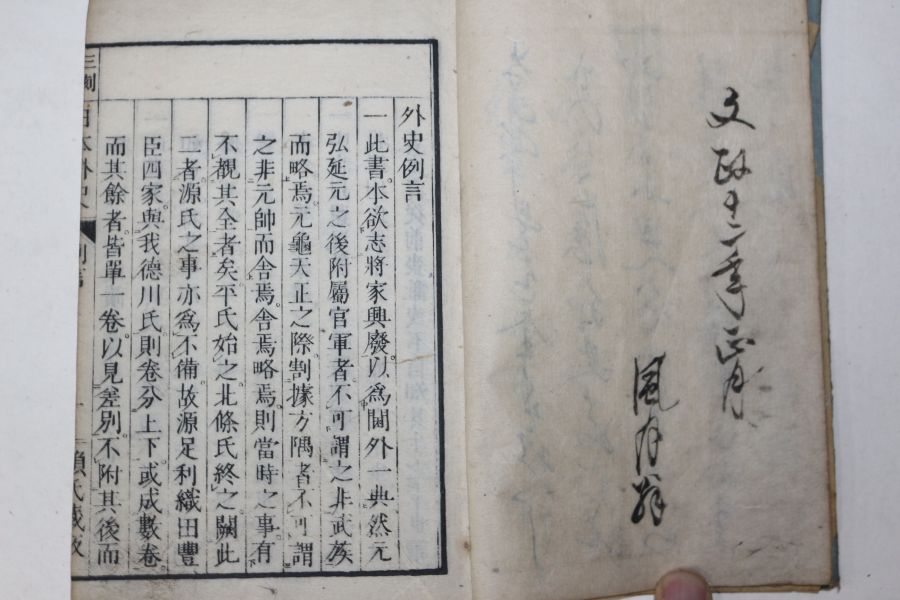 文政十二年正月
風月翁
外史例言
一此書本欲志將家興廢以爲閫外一典然元
弘延元之後附屬官軍者不可謂之非武族
而略焉元龜天正之際割據方隅者不可謂
之非元帥而舍焉舍焉略焉則當時之事有
不覩其全者矣平氏始之北條氏終之闕此
二者源氏之事亦爲不備故源足利織田豐
臣四家與我德川氏則卷分上下或成數卷
而其餘者皆單一卷以見差別不附其後而
三刻
日本外史
例言
一
頼氏藏板